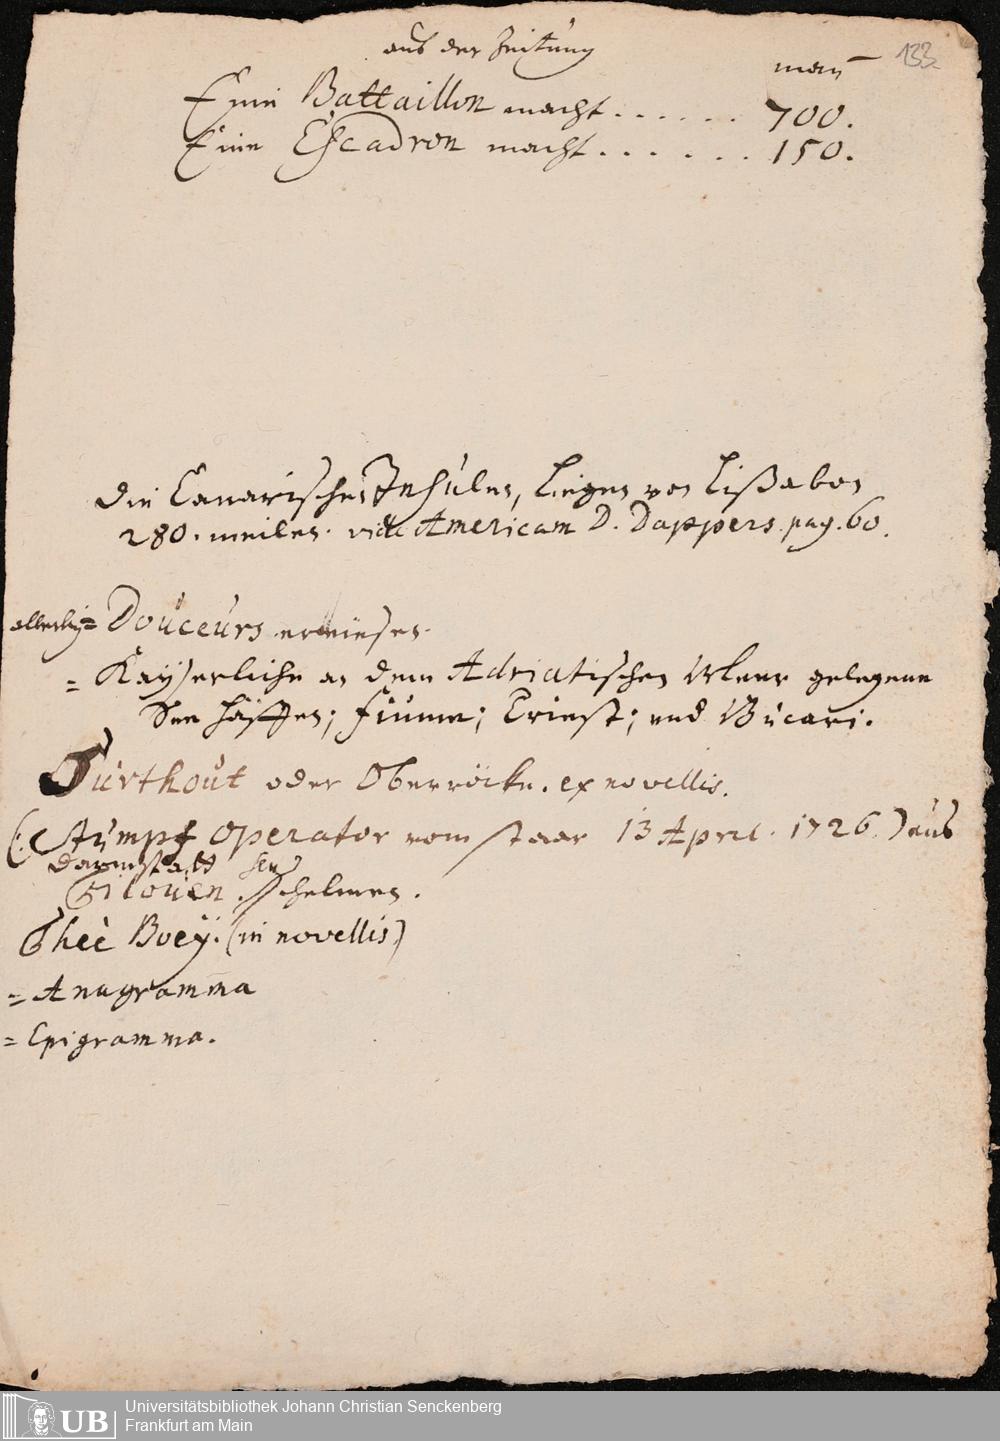 aus der Zeitung
133
man̄
Eine Battaillon macht . . . . . . 700.
Eine Escadron macht . . . . . . 150.
Die Canarischen Insulen, liegen von Lißabon
280. meilen. vide Americam D. Dappers pag. 60.
allerley = Douceurs erwiesen.
= Kayserliche an dem Adriatischen Meer gelegene
See häffen; Fiume; Triest; und Bucari.
Surthout oder Oberröcke. ex novellis.
(: Stumpf operator vom staar 13 April. 1726.) aus
Darmstatt
Filouen seu Schelmen.
Theè Boey. (in novellis)
= Anagramma
= Epigramma.
UB
Universitätsbibliothek Johann Christian Senckenberg
Frankfurt am Main